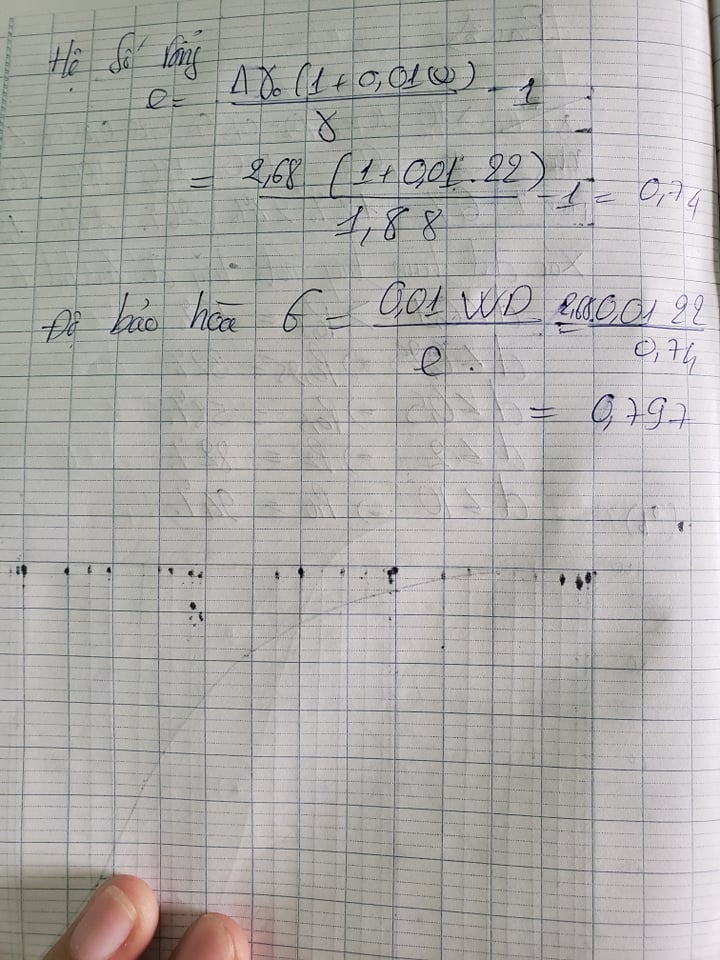 Hệ số rỗng
e = Δγ₀ (1 + 0,01ω) / γ - 1
= 2,68 (1 + 0,01 . 22) / 1,88 - 1 = 0,74
Độ bảo hõa G = 0,01 WD / e . = 2,68.0,01 22 / 0,74
= 0,797